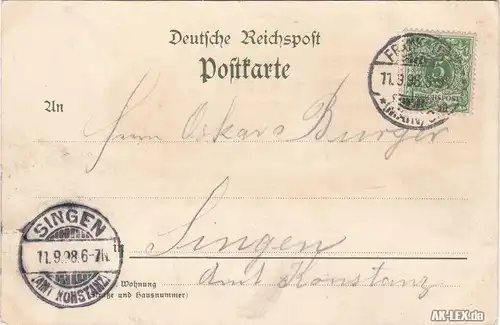 Deutsche Reichspost
Postkarte
FRANKFURT
11.9.98.
* (MAIN)
5
An
Herrn Oskar Burger
SINGEN
11.9.98.6-7N.
(AMT KONSTANZ)
in Singen
Amt Konstanz
Wohnung
(Straße und Hausnummer)
AK-LEX.de